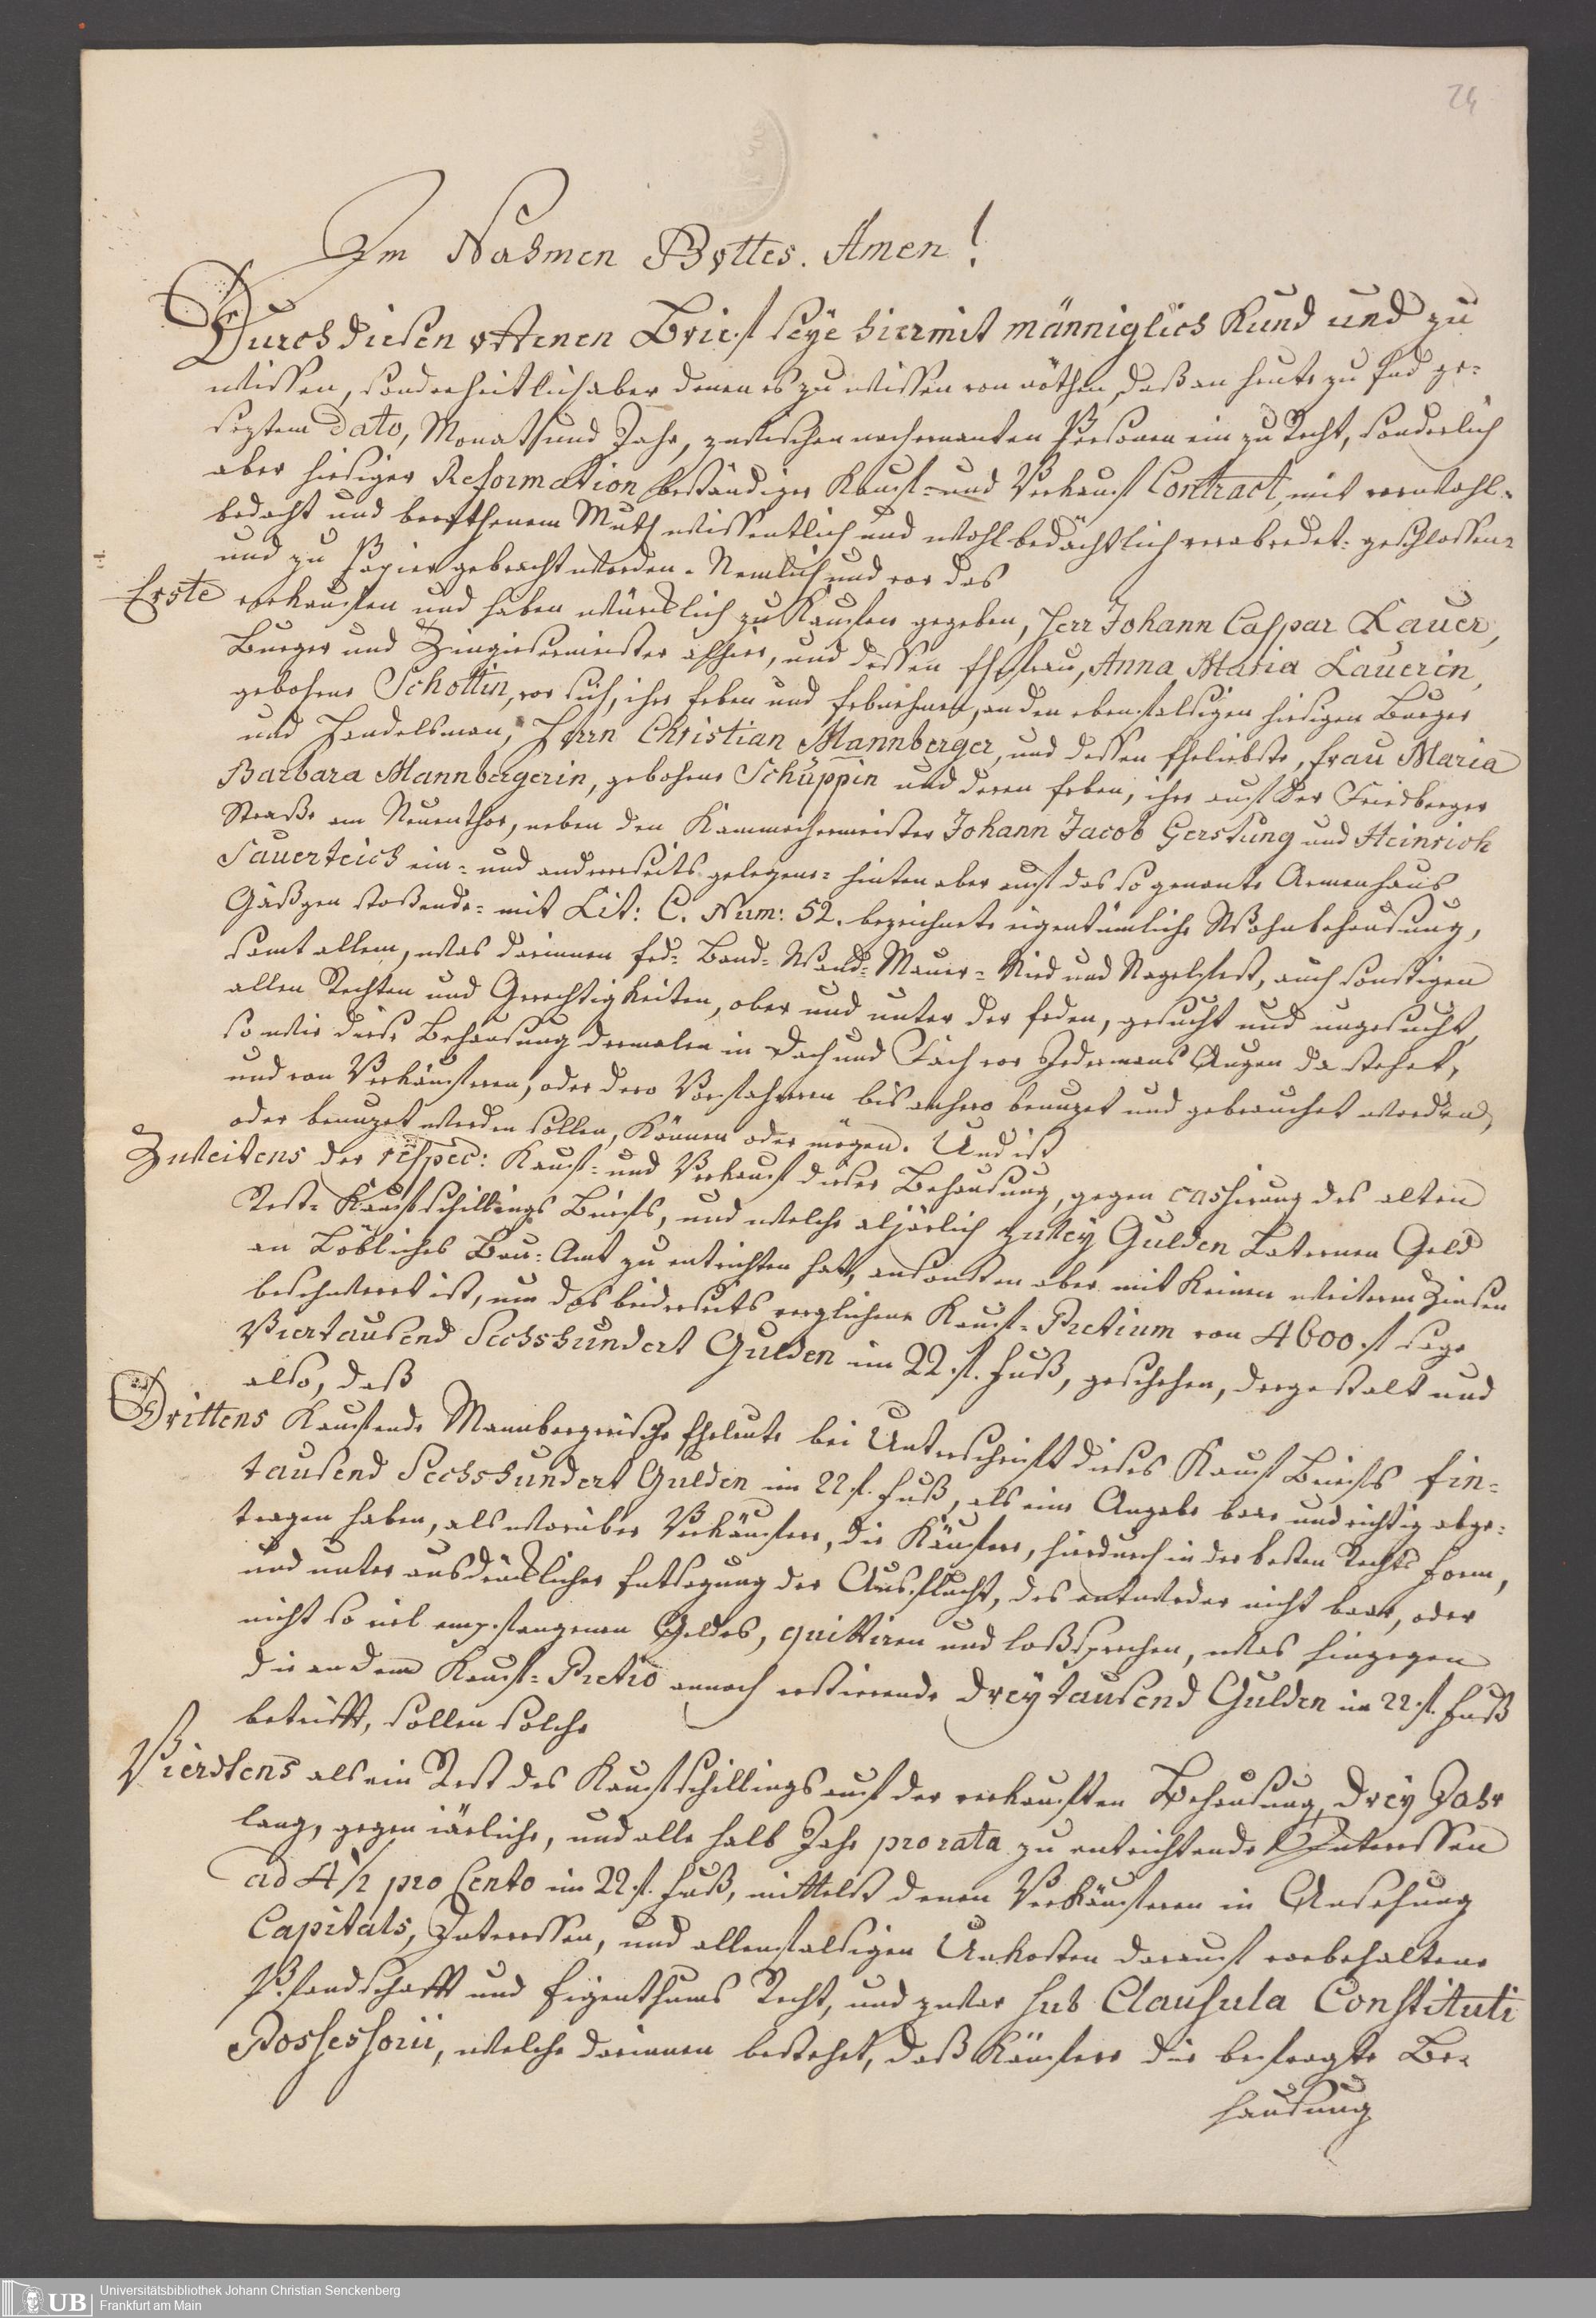 24
Im Nahmen Gottes. Amen!
Durch diesen offenen Brief seye hiermit männiglich Kund und zu
wissen, sonderheitlich aber denen es zu wissen von nöthen, daß an heute zu End ge=
seztem Dato, Monat und Jahr, zwischen nachernanten Personen ein zu Recht, sonderlich
aber hiesiger Reformation beständiger Kauf= und Verkauf Contract, mit vorwohl=
bedacht und berathenem Muth wissentlich und wohlbedächtlich verabredet= geschlossen=
und zu Papier gebracht worden. Nemlich und vor das
Erste verkaufen und haben würcklich zu Kaufen gegeben, Herr Johann Caspar Lauer,
Burger und Zingiesermeister alhier, und dessen Ehefrau, Anna Maria Lauerin,
gebohrne Schottin, vor sich, ihre Erben und Erbnehmen, an den ebenfalsigen hiesigen Burger
und Handelsman, Herrn Christian Mannberger, und dessen Eheliebste, Frau Maria
Barbara Mannbergerin, gebohrne Schuppin und deren Erben, ihre auf der Friedberger
Straße am Neuenthor, neben den Kammachermeister Johann Jacob Gerstung und Heinrich
Sauerteich ein= und anderseits gelegene= hinten aber auf das so genante Armenhaus
Gäßgen stoßende= mit Lit: C. Num: 52. bezeichnete eigentümliche Wohnbehausung,
samt allem, was darinnen Erd= Band= Wand= Mauer= Nied und Nagelfest, auch sonstigen
allen Rechten und Gerechtigkeiten, ober und unter der Erden, gesucht und ungesucht,
so wie diese Behausung dermalen in Dach und Fach vor Jedermans Augen da stehet,
und von Verkäufern, oder dero Vorfahren bis anhero benuzet und gebrauchet worden,
oder benuzet werden sollen, können oder mögen. Und ist
Zweitens der respec: Kauf= und Verkauf dieser Behausung, gegen cashirung des alten
Rest= Kaufschillings Briefs, und welche aljärlich zwey Gulden Laternen Geld
an Löbliches Bau= Amt zu entrichten hat, ansonsten aber mit keinen weiteren Zinsen
beschweret ist, um das beiderseits verglichene Kauf= Pretium von 4600. f sage
Viertausend Sechshundert Gulden im 22 f. Fuß, geschehen, dergestalt und
also, daß
Drittens Kaufende Mannbergerische Eheleute bei Unterschrift dieses Kauf Briefs Ein=
tausend Sechshundert Gulden im 22 f. Fuß, als eine Angabe baar und richtig abge=
tragen haben, als worüber Verkäufere, die Käufere, hierdurch in der besten Rechts Form,
und unter ausdrücklicher Entsagung der Ausflucht, des entweder nicht baar, oder
nicht so viel empfangenen Geldes, quittiren und loßsprechen, was hingegen
die an dem Kauf= Pretio annoch restirende Dreytausend Gulden im 22 f. Fuß
betrifft, sollen solche
Vierdtens als ein Rest des Kaufschillings auf der verkauften Behausung, drey Jahr
lang, gegen järliche, und alle halb Jahr pro rata zu entrichtende Interessen
ad 4½ pro Cento im 22 f. Fuß, mittelst denen Verkäuferen in Ansehung
Capitals, Interessen, und allenfalsigen Unkosten darauf vorbehaltene
Pfandschafft und Eigenthums Recht, und zwar sub Clausula Constituti
Possessorii, welche darinnen bestehet, daß Käufere die befragte Be=
hausung
UB
Universitätsbibliothek Johann Christian Senckenberg
Frankfurt am Main